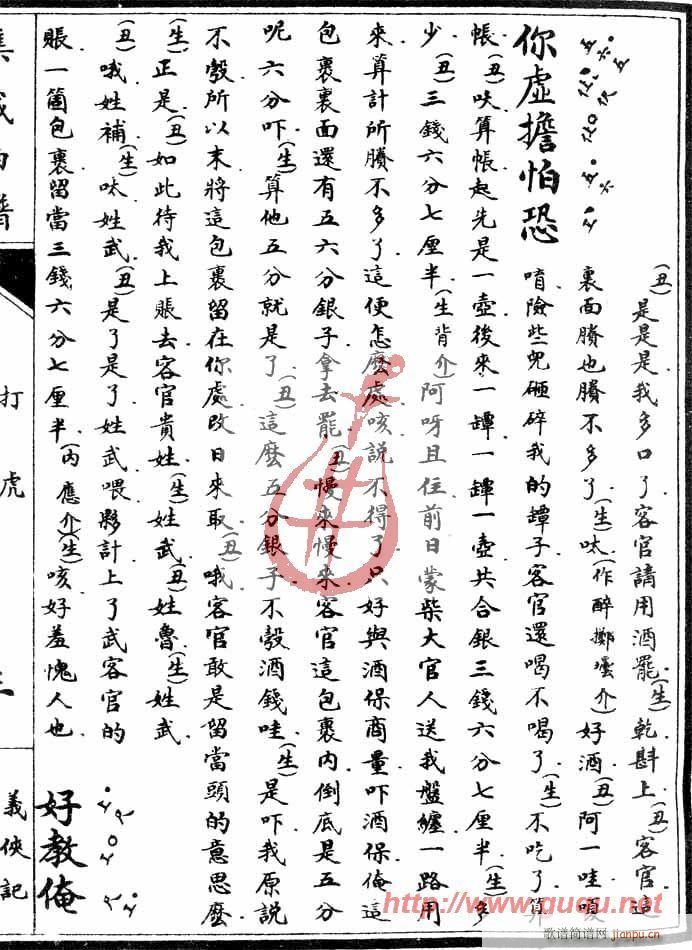 你虛擔怕恐
(丑)是是是我多口了客官請用酒罷(生)乾斟上(丑)客官這
裏面賸也賸不多了(生)呔(作醉擲壜介)好酒(丑)阿一哇嗄
唷險些兒砸碎我的罈子客官還喝不喝了(生)不吃了算
帳(丑)吙算帳起先是一壺後來一罈一罈一壺共合銀三錢六分七厘半(生)多
少(丑)三錢六分七厘半(生背介)阿呀且住前日蒙柴大官人送我盤纏一路用
來算計所賸不多了這便怎麽處咳說不得了只好與酒保商量吓酒保俺這
包裹裏面還有五六分銀子拿去罷(丑)慢來慢來客官這包裹內倒底是五分
呢六分吓(生)算他五分就是了(丑)這麽五分銀子不彀酒錢哇(生)是吓我原說
不彀所以末將這包裹留在你處改日來取(丑)哦客官敢是留當頭的意思麽
(生)正是(丑)如此待我上賬去客官貴姓(生)姓武(丑)姓魯(生)姓武
(丑)哦姓補(生)呔姓武(丑)是了是了姓武喂夥計上了武客官的
賬一箇包裹留當三錢六分七厘半(內應介)(生)咳好羞愧人也
好教俺
集成曲譜
打虎
義俠記
http://www.ququ.net
歌谱简谱网
jianpu.cn